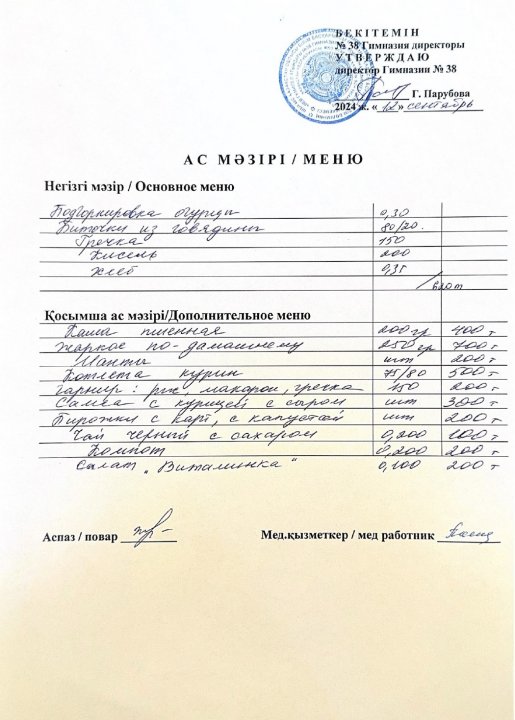 БЕКІТЕМІН
№ 38 Гимназия директоры
УТВЕРЖДАЮ
директор Гимназии № 38
Г. Парубова
2024 ж. « 12 » сентябрь
АС МӘЗІРІ / МЕНЮ
Негізгі мәзір / Основное меню
Подгорнировка огурцы 0,30
Биточки из говядины 80/20.
Гречка 150
Кисель 200
Хлеб 0,35
Қосымша ас мәзірі/Дополнительное меню
Каша пшенная 200 гр 400 т
Жаркое по-домашнему 250 гр 700 т
Манты шт 200 т
Котлета курин 75/80 500 т
Гарнир: рис, макарон, гречка 150 200 т
Самса с курицей с сыром шт 300 т
Пирожки с карт, с капустой шт 200 т
Чай черный с сахаром 0,200 100 т
Компот 0,200 200 т
Салат „Витаминка" 0,100 200 т
Аспаз / повар
Мед.қызметкер / мед работник